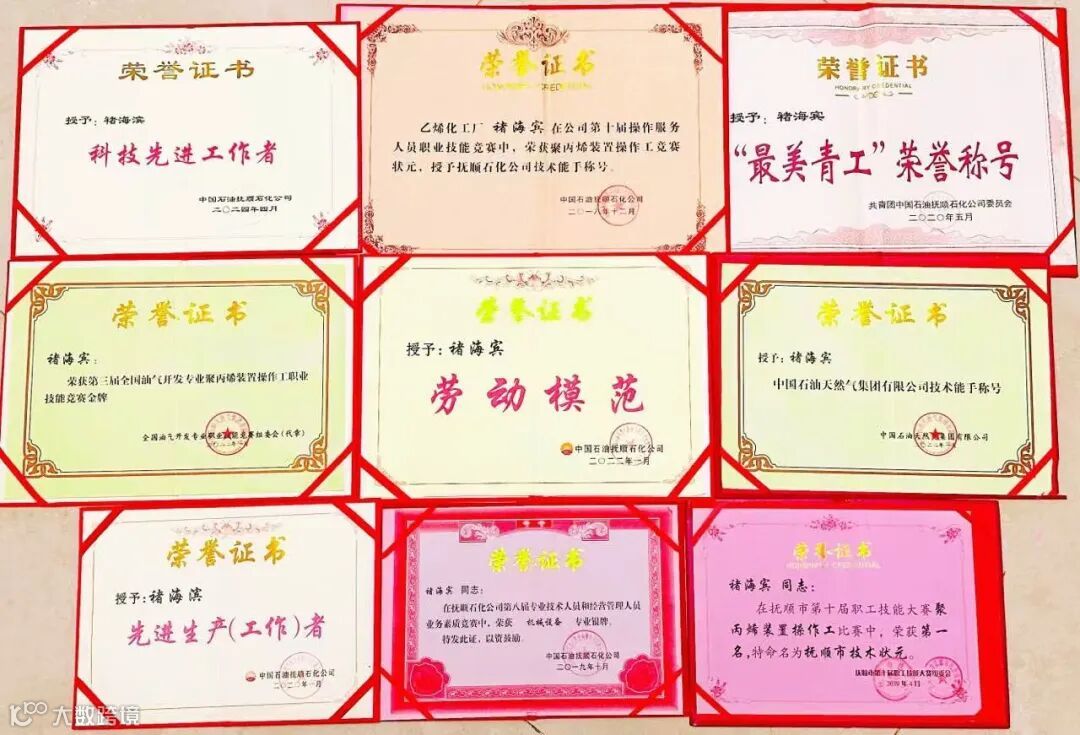 荣誉证书
授予：褚海滨
科技先进工作者
中国石油抚顺石化公司
二〇二四年四月
荣誉证书
HONORARY CREDENTIAL
乙烯化工厂 褚海宾 在公司第十届操作服务
人员职业技能竞赛中，荣获聚丙烯装置操作工竞赛
状元，授予抚顺石化公司技术能手称号。
中国石油抚顺石化公司
二〇一八年十二月
荣誉证书
HONORARY CREDENTIAL
授予：褚海宾
“最美青工”荣誉称号
共青团中国石油抚顺石化公司委员会
二〇二〇年五月
荣誉证书
褚海宾：
荣获第三届全国油气开发专业聚丙烯装置操作工职业
技能竞赛金牌
全国油气开发专业职业技能竞赛组委会（代章）
荣誉证书
授予：褚海宾
劳动模范
中国石油抚顺石化公司
二〇二二年一月
荣誉证书
授予：褚海宾
中国石油天然气集团有限公司技术能手称号
中国石油天然气集团有限公司
荣誉证书
授予：褚海滨
先进生产（工作）者
中国石油抚顺石化公司
二〇二〇年一月
荣誉证书
褚海宾 同志：
在抚顺石化公司第八届专业技术人员和经营管理人员
业务素质竞赛中，荣获 机械设备 专业银牌。
特发此证，以资鼓励。
中国石油抚顺石化公司
二〇一九年十月
荣誉证书
HONORARY CREDENTIAL
褚海宾 同志：
在抚顺市第十届职工技能大赛聚
丙烯装置操作工比赛中，荣获第一
名，特命名为抚顺市技术状元。
抚顺市第十届职工技能大赛组委会
2019年4月
大数跨境